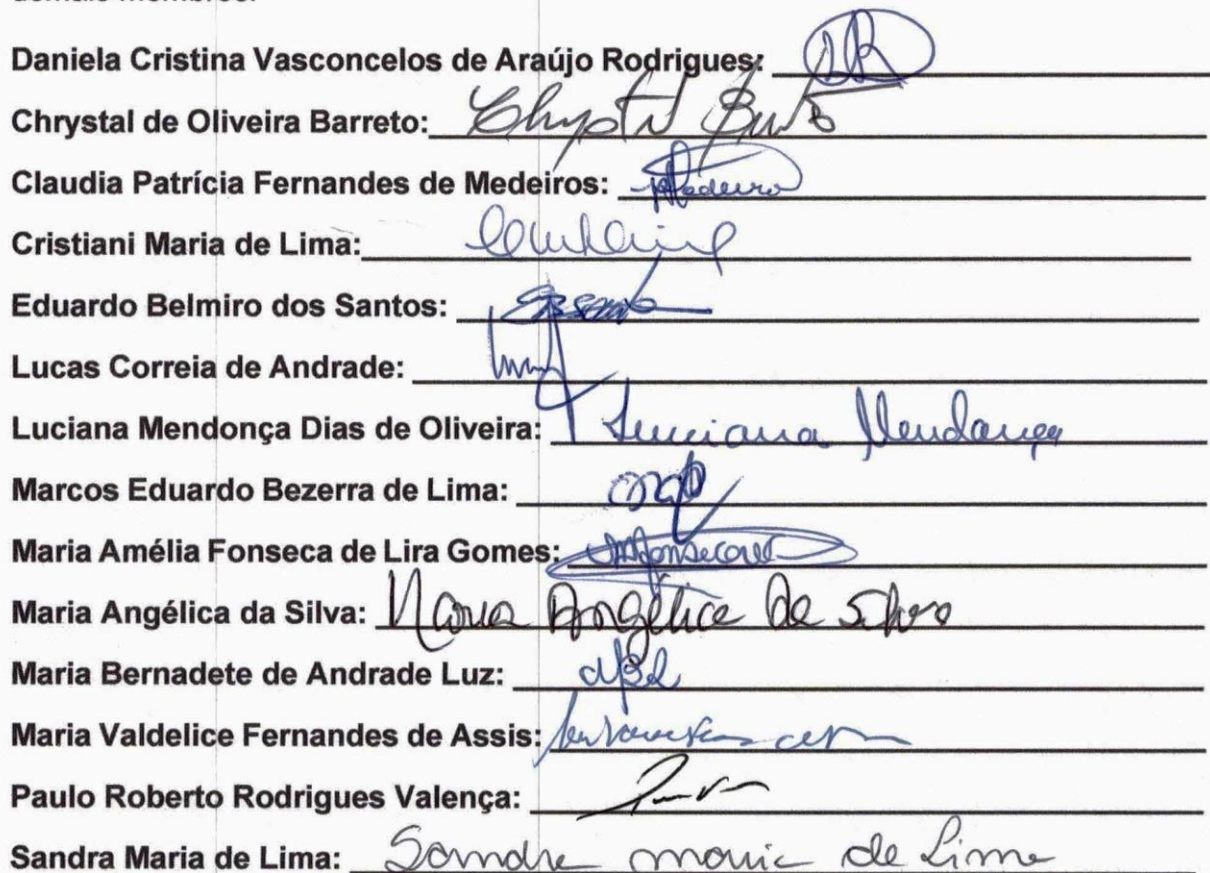 Daniela Cristina Vasconcelos de Araújo Rodrigues: DR
Chrystal de Oliveira Barreto: Chrystal
Claudia Patrícia Fernandes de Medeiros: Medeiros
Cristiani Maria de Lima:
Eduardo Belmiro dos Santos:
Lucas Correia de Andrade:
Luciana Mendonça Dias de Oliveira: Luciana Mendonça
Marcos Eduardo Bezerra de Lima:
Maria Amélia Fonseca de Lira Gomes:
Maria Angélica da Silva: Maria Angélica da Silva
Maria Bernadete de Andrade Luz:
Maria Valdelice Fernandes de Assis:
Paulo Roberto Rodrigues Valença:
Sandra Maria de Lima: Sandra Maria de Lima